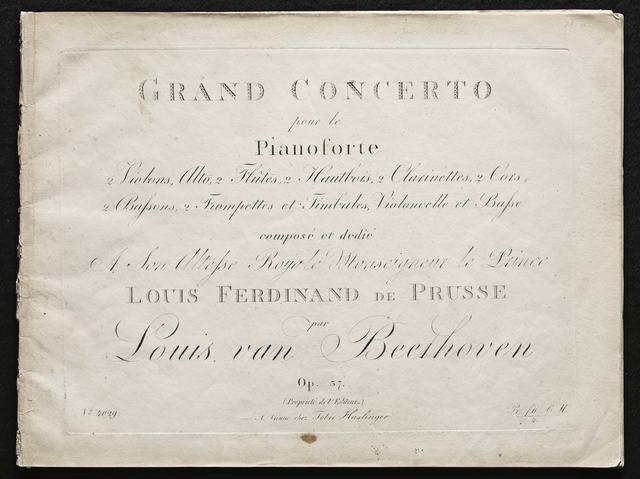 GRAND CONCERTO
pour le
Pianoforte
2 Violons, Alto, 2 Flûtes, 2 Hautbois, 2 Clarinettes, 2 Cors,
2 Baſsons, 2 Trompettes et Timbales, Violoncelle et Baſse
composé et dedié
A Son Alteſse Royale Monseigneur le Prince
LOUIS FERDINAND DE PRUSSE
par
Louis van Beethoven
Op. 37.
(Proprieté de l'Editeur.)
A Vienne chez Tobie Haslinger
No 4029
C. M.